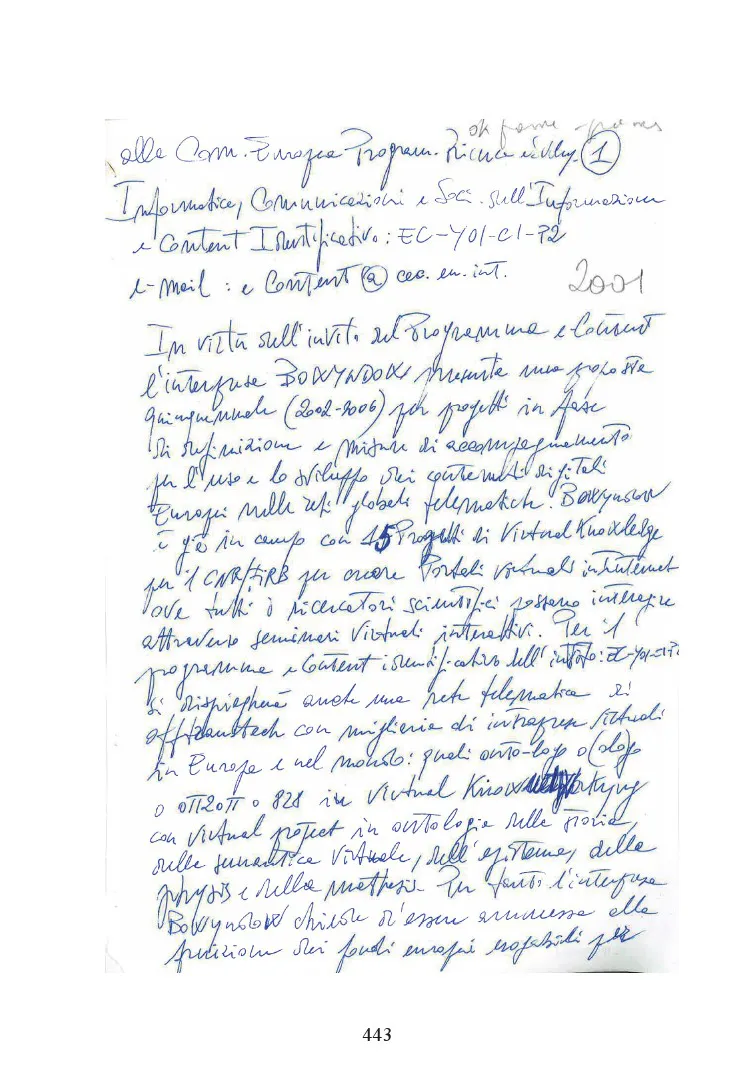 ok
alla Com. Europea Program. Ricerca e 1
Informatica, Comunicazioni e Soci. dell'Informazione
e Content Identificativo: EC-Y01-C1-P2
e-mail : e Content @ cec.eu.int.
2001
In virtù dell'invito del Programma e Content
l'interprese BOWYNDOW presenta una proposta
quinquennale (2002-2006) per progetti in fase
di definizione e misure di accompagnamento
per l'uso e lo sviluppo dei contenuti digitali
Europei nelle reti globali telematiche. Bowyndow
è già in campo con 15 Progetti di Virtual Knowledge
per il CNR/FIRB per creare Portali virtuali in internet
ove tutti i ricercatori scientifici possano interagire
attraverso seminari Virtuali interattivi. Per il
programma e Content identificativo dell'invito:
si dispiegherà anche una rete telematica di
con migliaia di intraprese virtuali
in Europa e nel mondo: quali onto-logo o logo
o 828 in Virtual
con virtual project in ontologia della storia,
della semantica virtuale, dell'episteme, della
physis e della mathesis. Per tanto l'interprese
Bowyndow chiede d'essere ammessa alla
fruizione dei fondi europei erogabili per
443